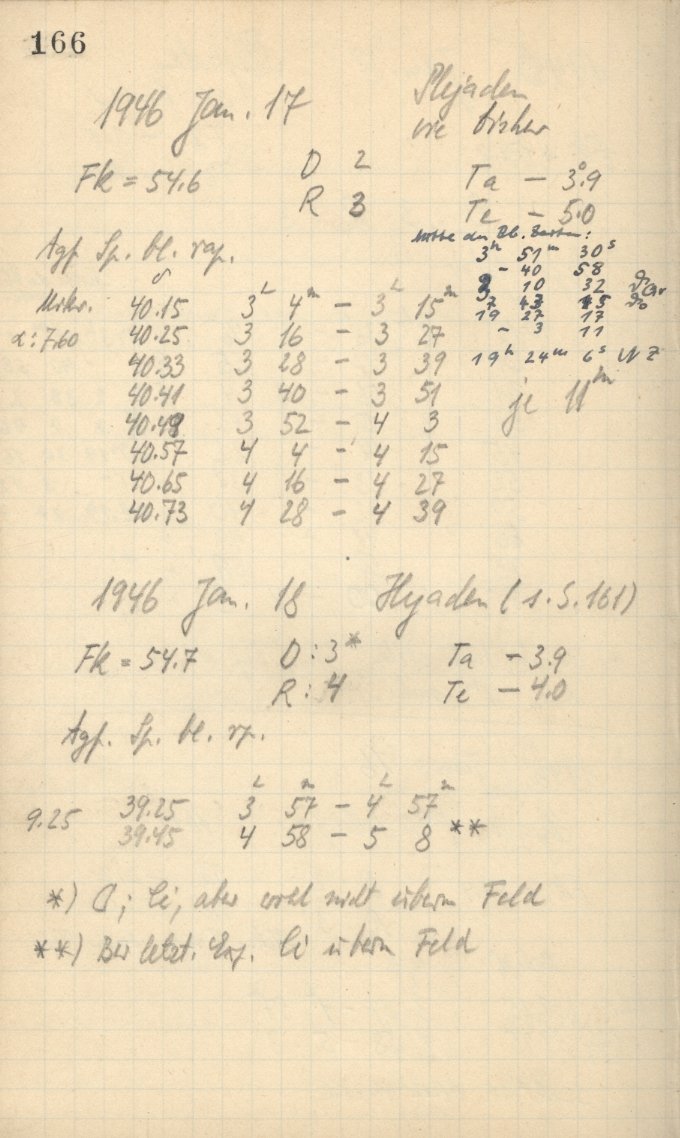 166
1946 Jan. 17 Plejaden
wie bisher
Fk = 54.6 D 2 Ta - 3°.9
R 3 Te - 5.0
Agf. Sp. bl. rap. Mitte der Bel. Zeiten:
3h 51m 30s
- 40 58
3 10 32
δ
Mikr. 40.15 3h 4m - 3h 15m
19 27 17
α: 7.60 40.25 3 16 - 3 27
- 3 11
40.33 3 28 - 3 39
19h 24m 6s
40.41 3 40 - 3 51 je 11m
40.49 3 52 - 4 3
40.57 4 4 - 4 15
40.65 4 16 - 4 27
40.73 4 28 - 4 39
1946 Jan. 18 Hyaden (s. S. 161)
Fk = 54.7 D : 3* Ta - 3.9
R : 4 Te - 4.0
Agf. Sp. bl. rp.
9.25 39.25 3h 57m - 4h 57m
39.45 4 58 - 5 8 **
*) ; Ci, aber wohl nicht überm Feld
**) Bei letzt. Exp. Ci überm Feld